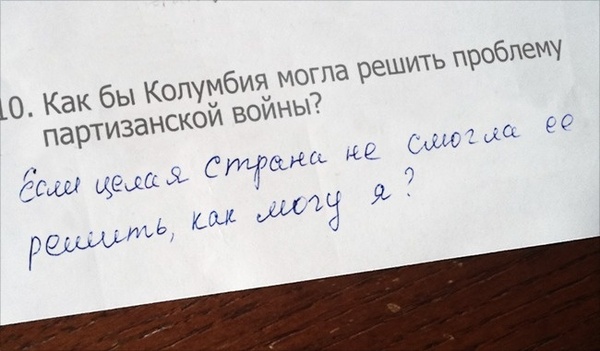 10. Как бы Колумбия могла решить проблему
партизанской войны?
Если целая страна не смогла ее
решить, как могу я?